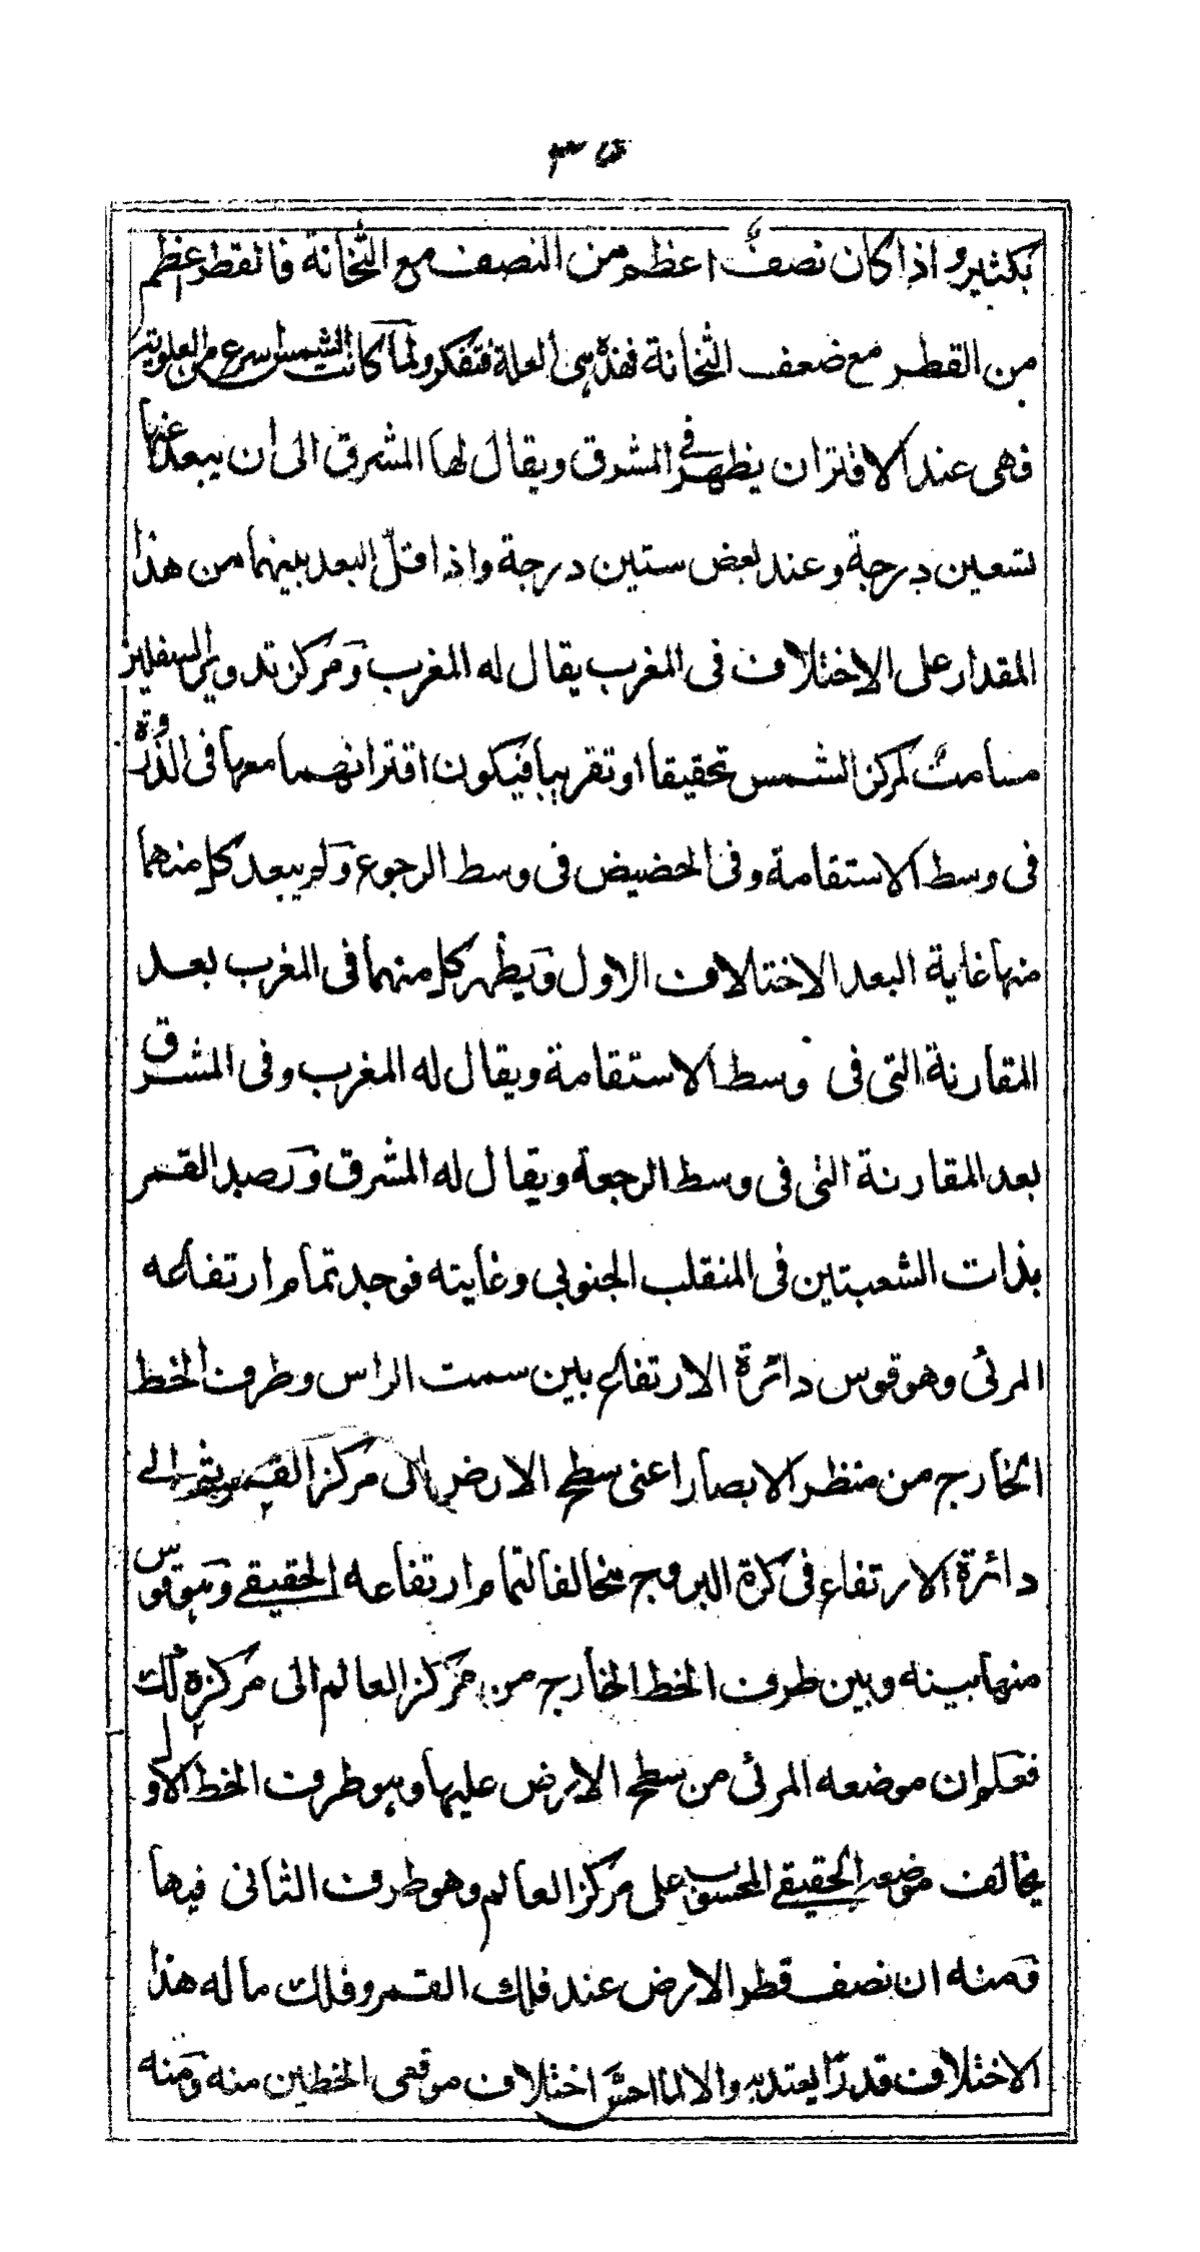 ٣٥
بكثير واذا كان نصفٌ اعظم من النصف مع الثخانة فالقطر عظم
من القطر مع ضعف الثخانة فهذه هى العلة فتفكر ولما كانت الشمس اسرع من العلوية
فهى عند الاقتران يظهر فى المشرق ويقال لها المشرق الى ان يبعد عنها
تسعين درجة وعند بعض ستين درجة واذا قلّ البعد بينهما من هذا
المقدار على الاختلاف فى المغرب يقال له المغرب ومركز تدوير السفليين
مسامتٌ لمركز الشمس تحقيقا او تقريبا فيكون اقترانهما معها فى الذروة
فى وسط الاستقامة وفى الحضيض فى وسط الرجوع ولم يبعد كل منهما
منها غاية البعد الاختلاف الاول ويظهر كل منهما فى المغرب بعد
المقارنة التى فى وسط الاستقامة ويقال له المغرب وفى المشرق
بعد المقارنة التى فى وسط الرجعة ويقال له المشرق ورصد القمر
بذات الشعبتين فى المنقلب الجنوبى وغايته فوجد تمام ارتفاعه
المرئى وهو قوس دائرة الارتفاع بين سمت الراس وطرف الخط
الخارج من منظر الابصار اعنى سطح الارض الى مركز القمر ثم الى
دائرة الارتفاع فى كرة البروج مخالفا لتمام ارتفاعه الحقيقے وهو قوس
منها بينه وبين طرف الخط الخارج من مركز العالم الى مركزه كك
فعلم ان موضعه المرئى من سطح الارض عليها وهو طرف الخط الاول
يخالف موضعه الحقيقے المحسوب على مركز العالم وهو طرف الثانى فيها
ومنه ان نصف قطر الارض عند فلك القمر وفلك ما له هذا
الاختلاف قدرًا يعتد به والا لما احسّ اختلاف موقعى الخطين منه ومنه